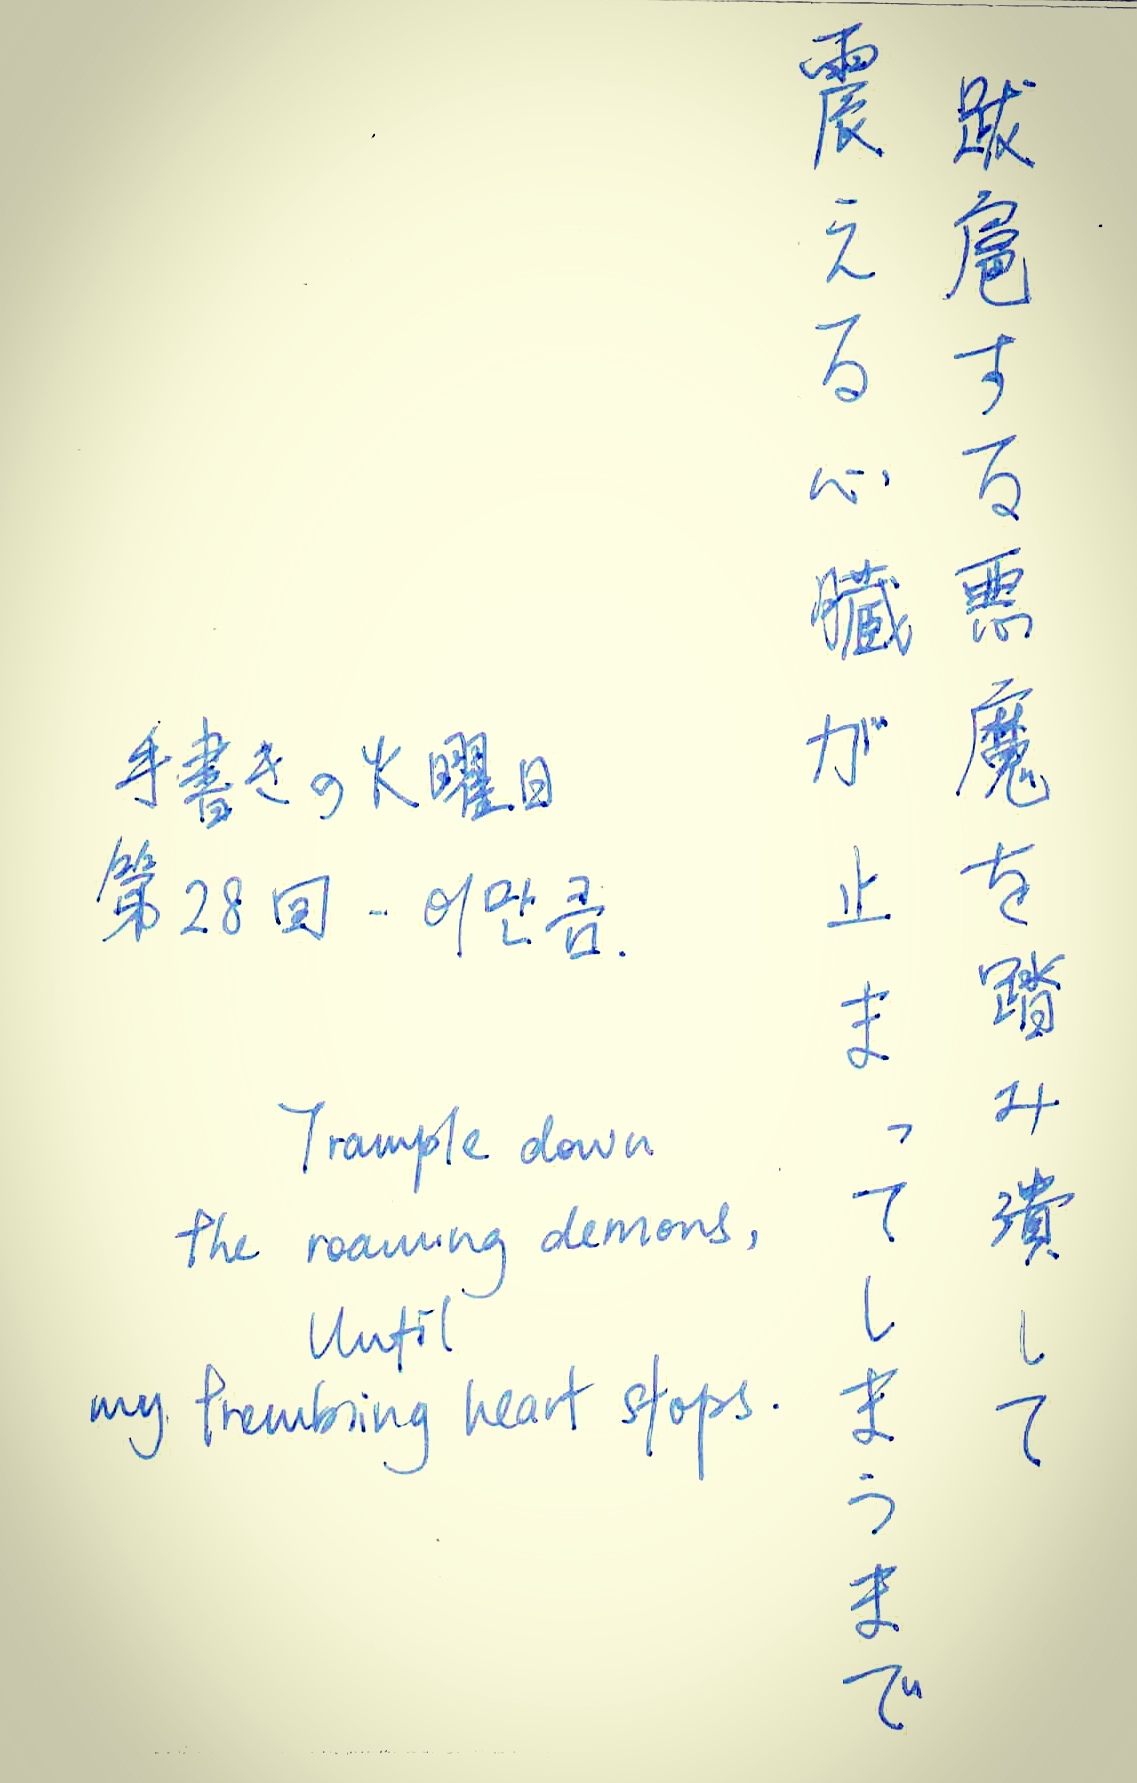 跋扈する悪魔を踏み潰して
震える心臓が止まってしまうまで
手書きの火曜日
第28回 - 이만큼.
Trample down
the roaming demons,
Until
my trembling heart stops.